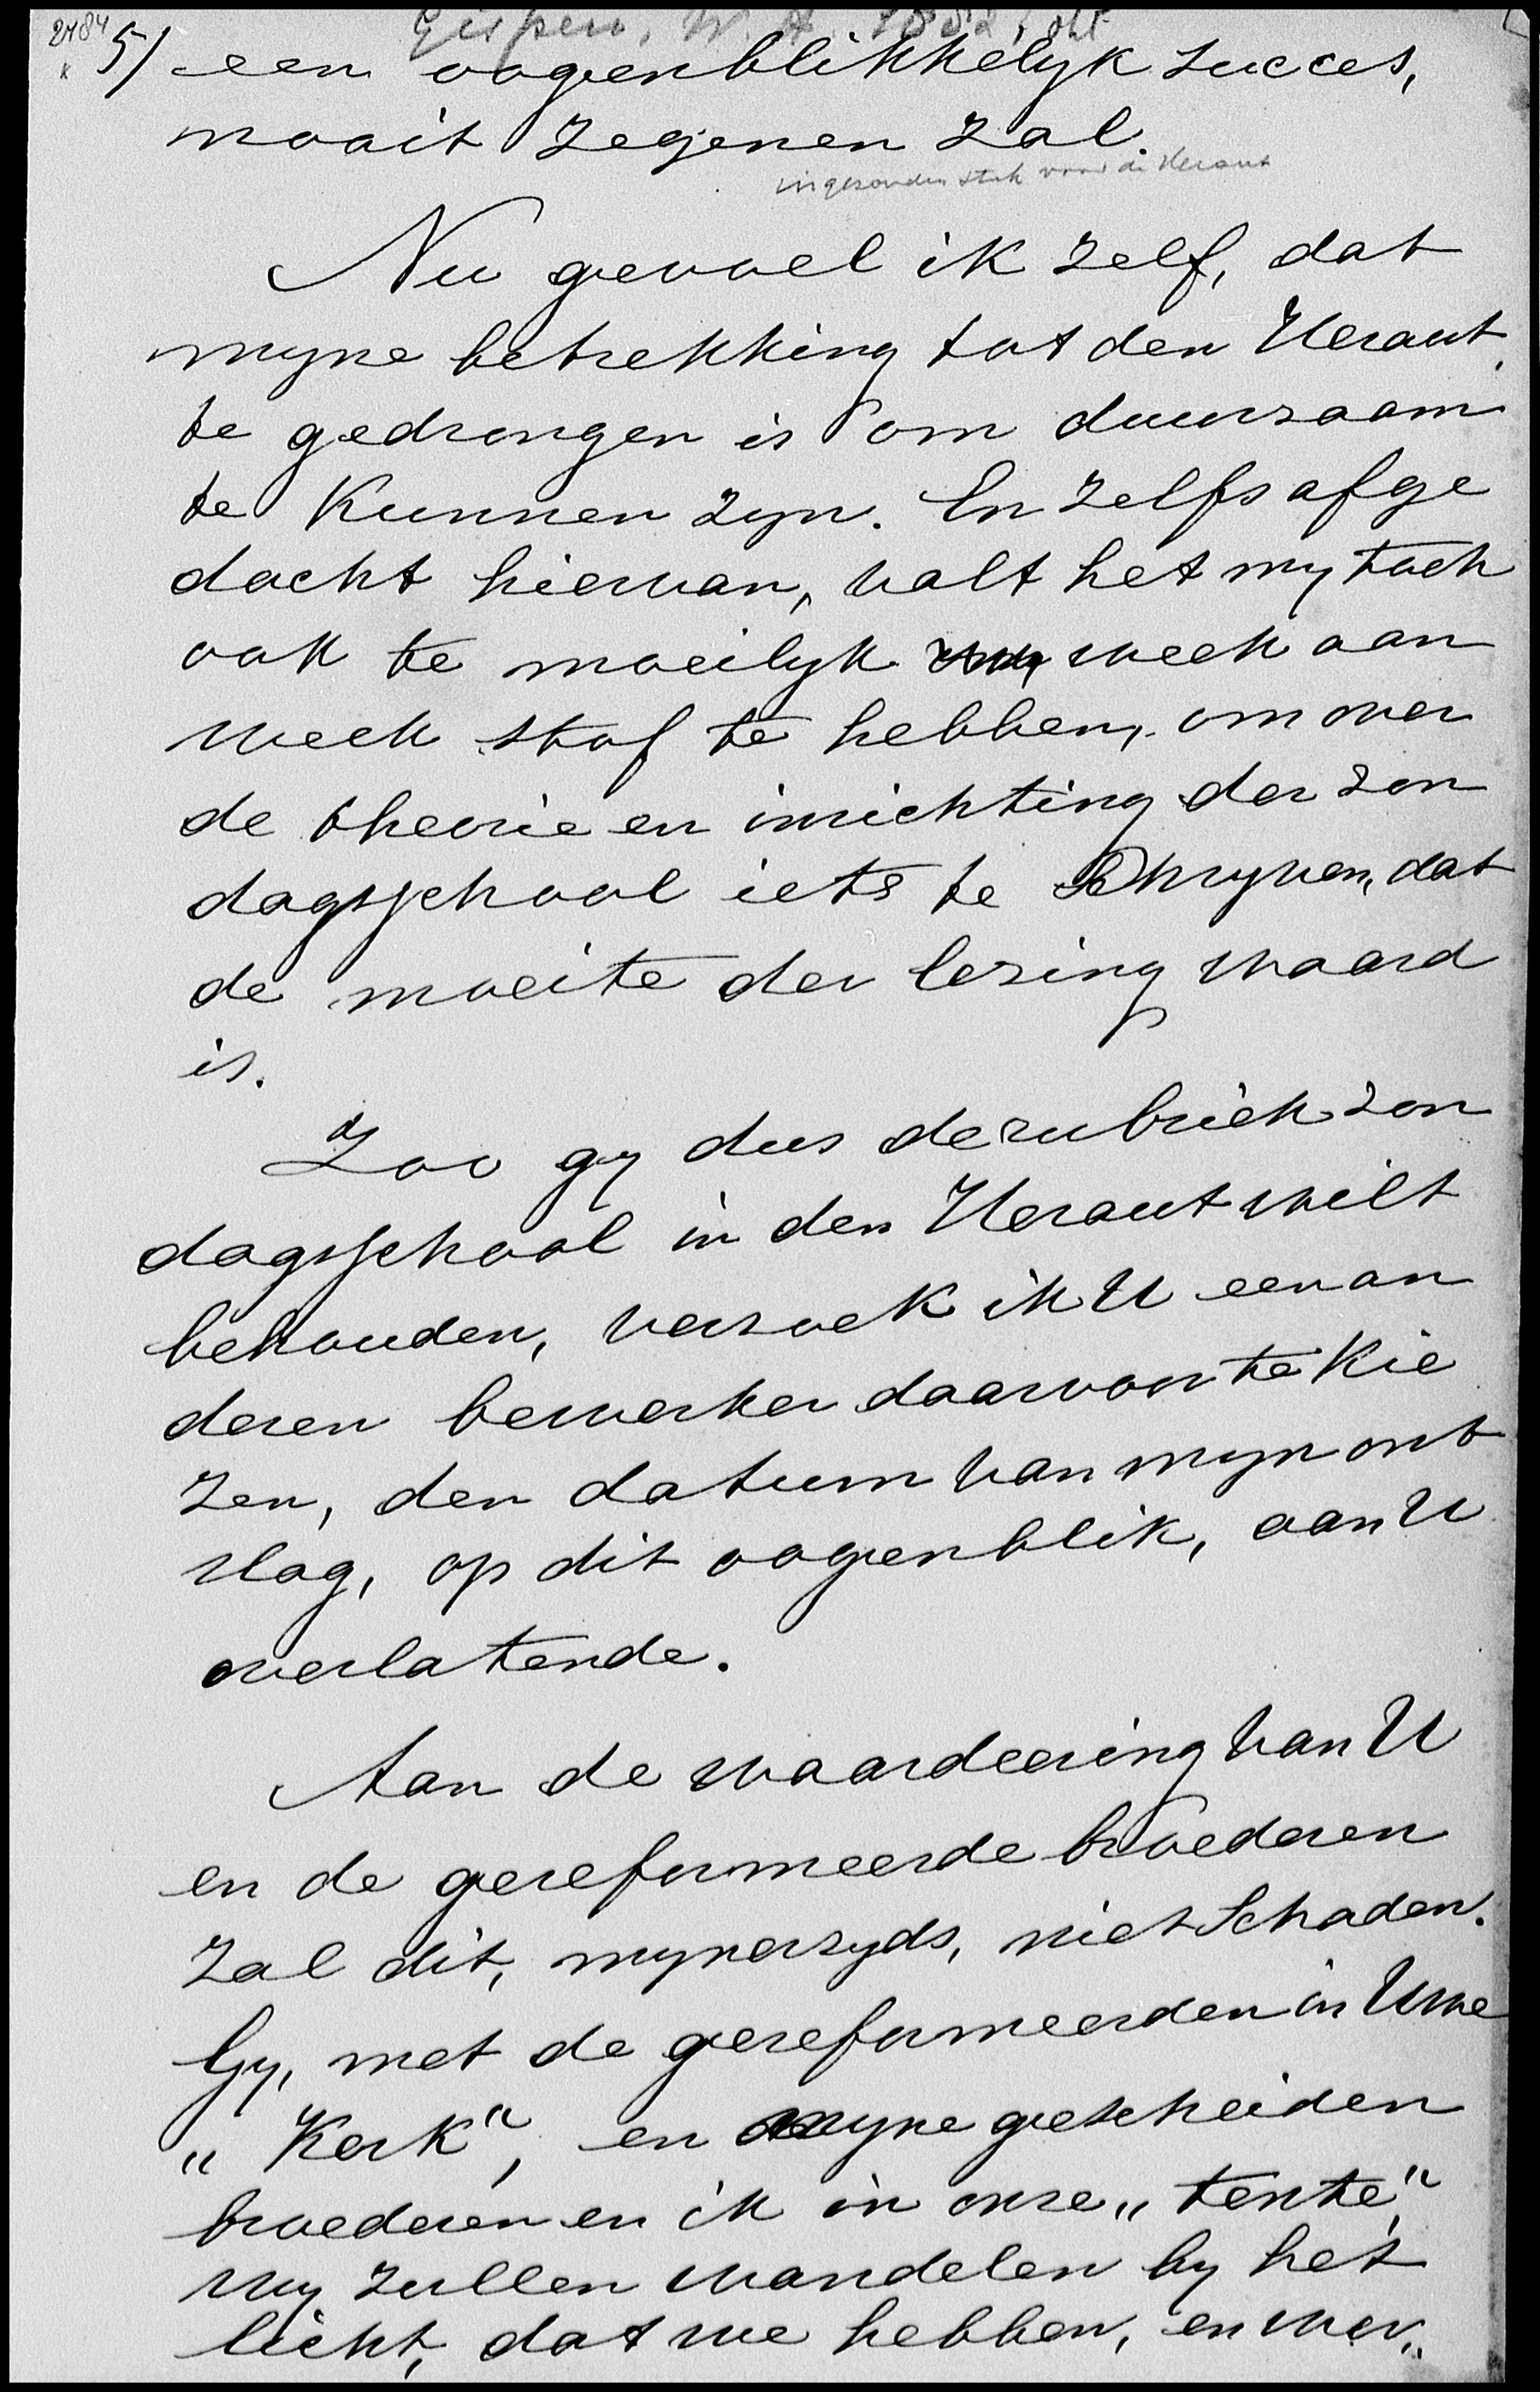 2484 Gispen, W.H. 1882, okt
5/ een oogenblikkelyk succes,
nooit zegenen zal.
ingezonden stuk voor de Heraut
Nu gevoel ik zelf, dat
myne betrekking tot den Heraut
te gedrongen is om duurzaam
te kunnen zyn. En zelfs afge
dacht hiervan, valt het my toch
ook te moeilyk week aan
week stof te hebben, om over
de theorie en inrichting der zon
dagsschool iets te schryven, dat
de moeite der lezing waard
is.
Zoo gy dus de rubriek zon
dagsschool in den Heraut wilt
behouden, verzoek ik U een an
deren bewerker daarvoor te kie
zen, den datum van myn ont
slag, op dit oogenblik, aan U
overlatende.
Aan de waardeering van U
en de gereformeerde broederen
zal dit, mynerzyds, niet schaden.
Gy, met de gereformeerden in Uwe
„Kerk“, en myne gescheiden
broederen en ik in onze „tente“,
wy zullen wandelen by het
licht, dat we hebben, en wer„